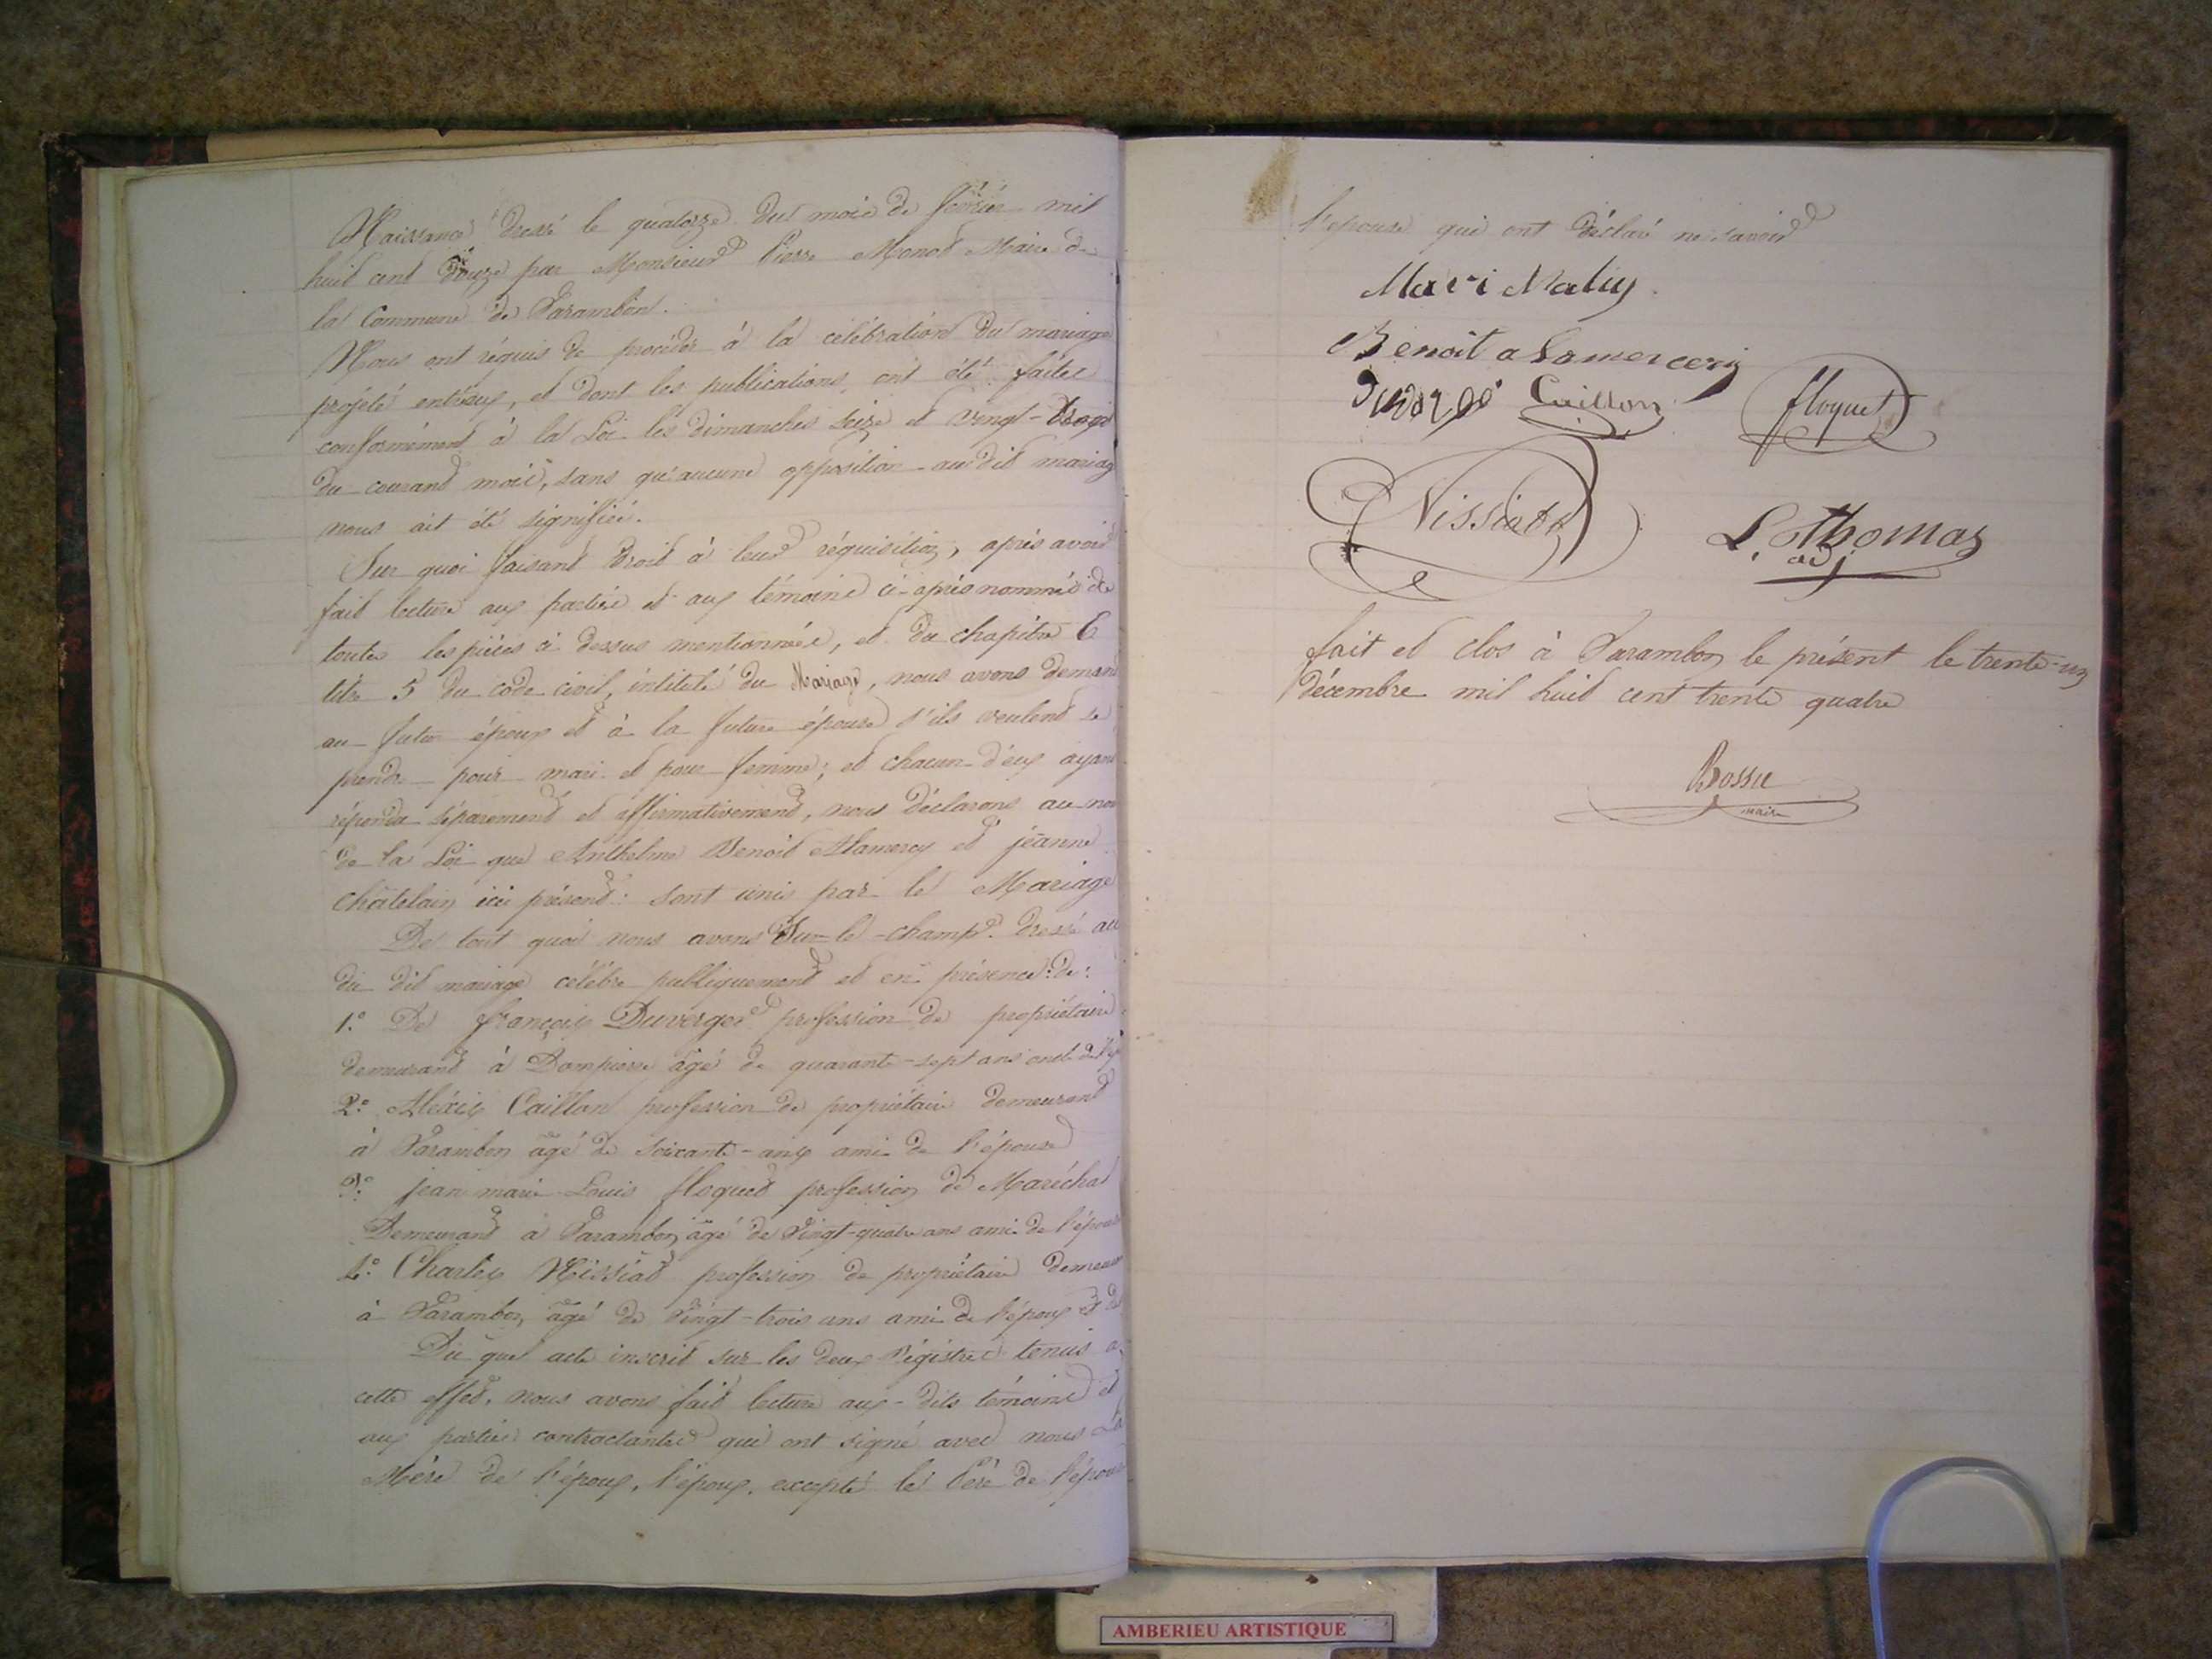 Naissance dressé le quatorze du mois de février mil
huit cent douze par Monsieur Pierre Monod Maire de
la Commune de Varambon.
Nous ont réquis de procéder à la célébration du mariage
projété entr'eux, et dont les publications ont été faites
conformément à la Loi les dimanches seize et vingt-trois
du courant mois, sans qu'aucune opposition au dit mariag
nous ait été signifiée.
Sur quoi faisant droit à leur réquisition, après avoir
fait lecture aux parties et aux témoins ci-après nommés de
toutes les pièces ci dessus mentionnées, et du chapitre 6
titre 5 du code civil, intitulé du Mariage, nous avons demand
au futur époux et à la future épouse s'ils veulent se
prendre pour mari et pour femme; et chacun d'eux ayant
répondu séparément et affirmativement, nous déclarons au nom
de la Loi que Anthelme Benoit Alamercy et jeanne
châtelain ici présent: sont unis par le Mariage
De tout quoi nous avons Sur-le-champ dressé ac
du dit mariage célébré publiquement et en présence de:
1.° De françois Duverger profession de propriétaire
demeurant à Dompierre âgé de quarante-sept ans oncle de l'ép
2.° Aléxis Caillon profession de propriétaire demeurant
à Varambon âgé de soixante-ans ami de l'épouse
3.° jean marie Louis floquet profession de Maréchal
Demeurant à Varambon âgé de Vingt-quatre ans ami de l'épouse
4.° Charles Nissiat profession de propriétaire demeuran
à Varambon, âgé de Vingt-trois ans ami de l'époux et de
Du quel acte inscrit sur les deux Régistres tenus a
cette effet, nous avons fait lecture aux-dits témoins et
aux parties contractantes qui ont signé avec nous La
Mère de l'époux, l'époux, excepté le Père de l'épouse
l'épouse qui ont déclaré ne savoir
Mari
Benoit alamercery
Caillon floquet
Nissiat L. Thomas
adj
fait et clos à Varambon le présent le trente-un
décembre mil huit cent trente quatre
Bossu
maire
AMBERIEU ARTISTIQUE